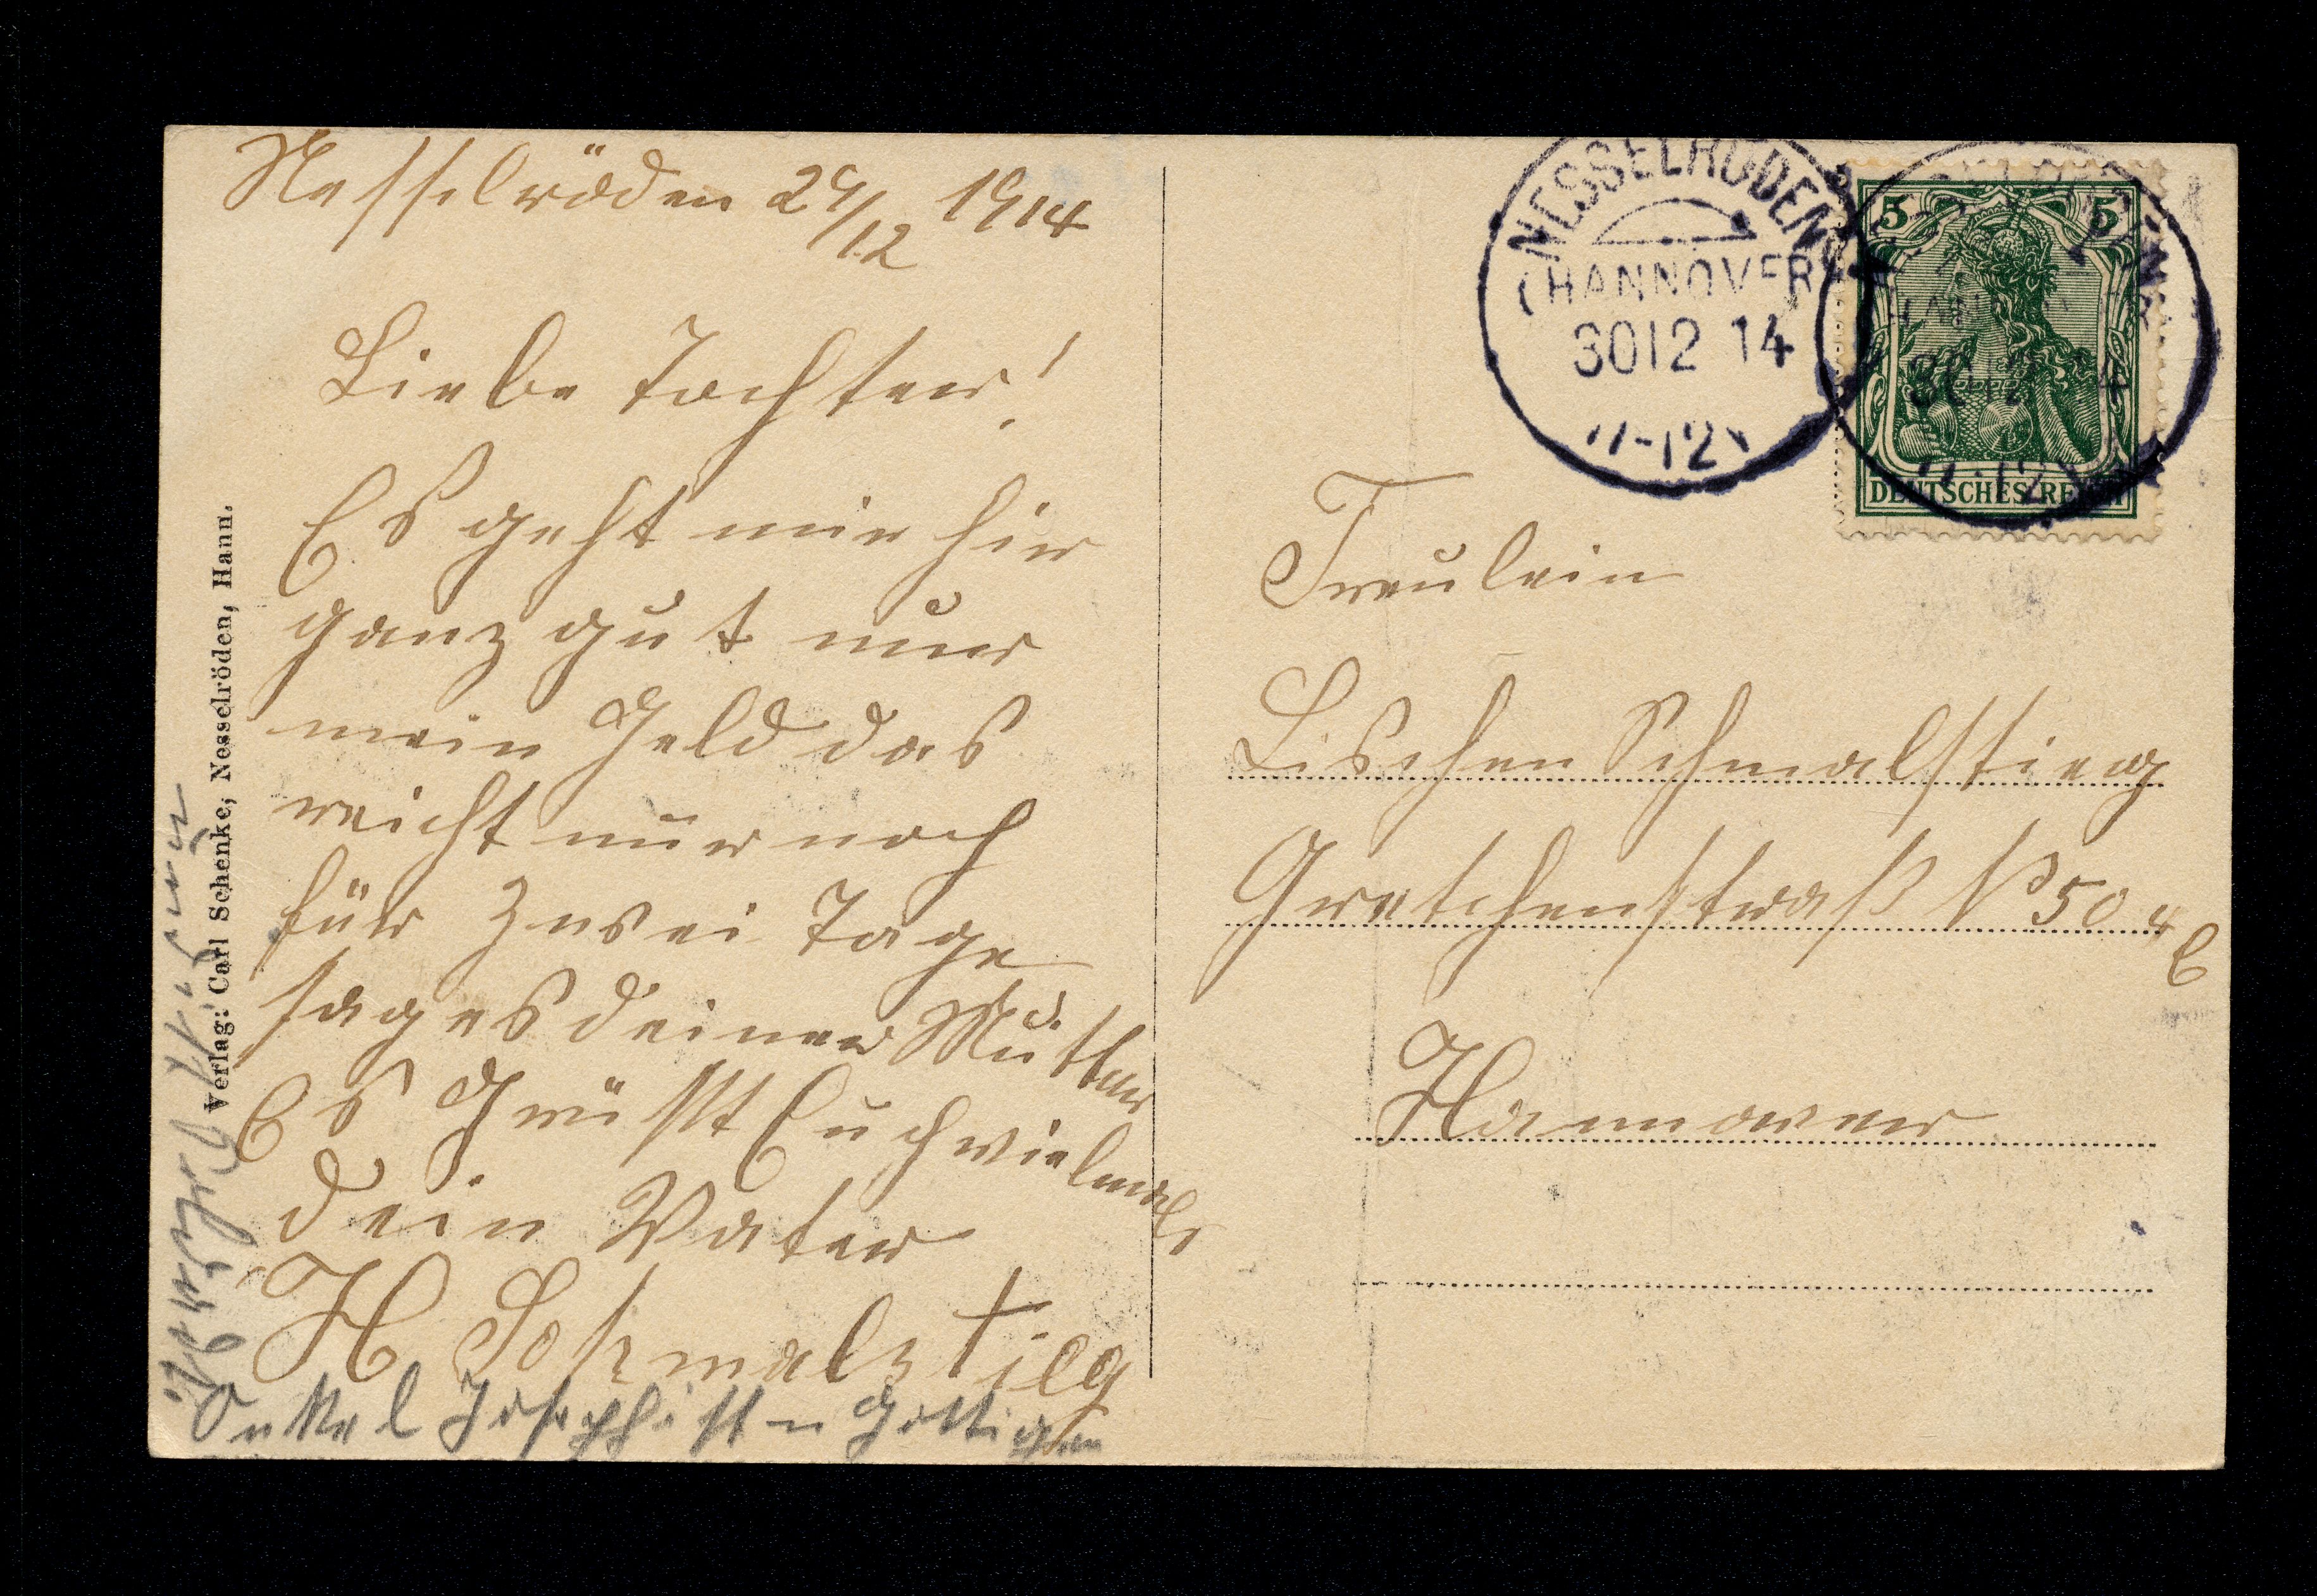 Nesselröden 29/12 1914
Liebe Tochter!
Es geht mir hir
ganz gut nur
mein Geld das
reicht nur noch
für zwei Tage
sag es deiner Mutter
Es Grüßt Euch vielmals
dein Vater
H Schmalstieg
Onkel Joseph ist in Gottigen
Verlag: Carl Schenke, Nesselröden, Hann.
NESSELRÖDEN
(HANNOVER)
30 12 14
11-12V
5 5
DEUTSCHES REICH
30 12 14
11-12V
Freulein
Lischen Schmalstieg
Gretchenstraß № 50 4 E
Hannower